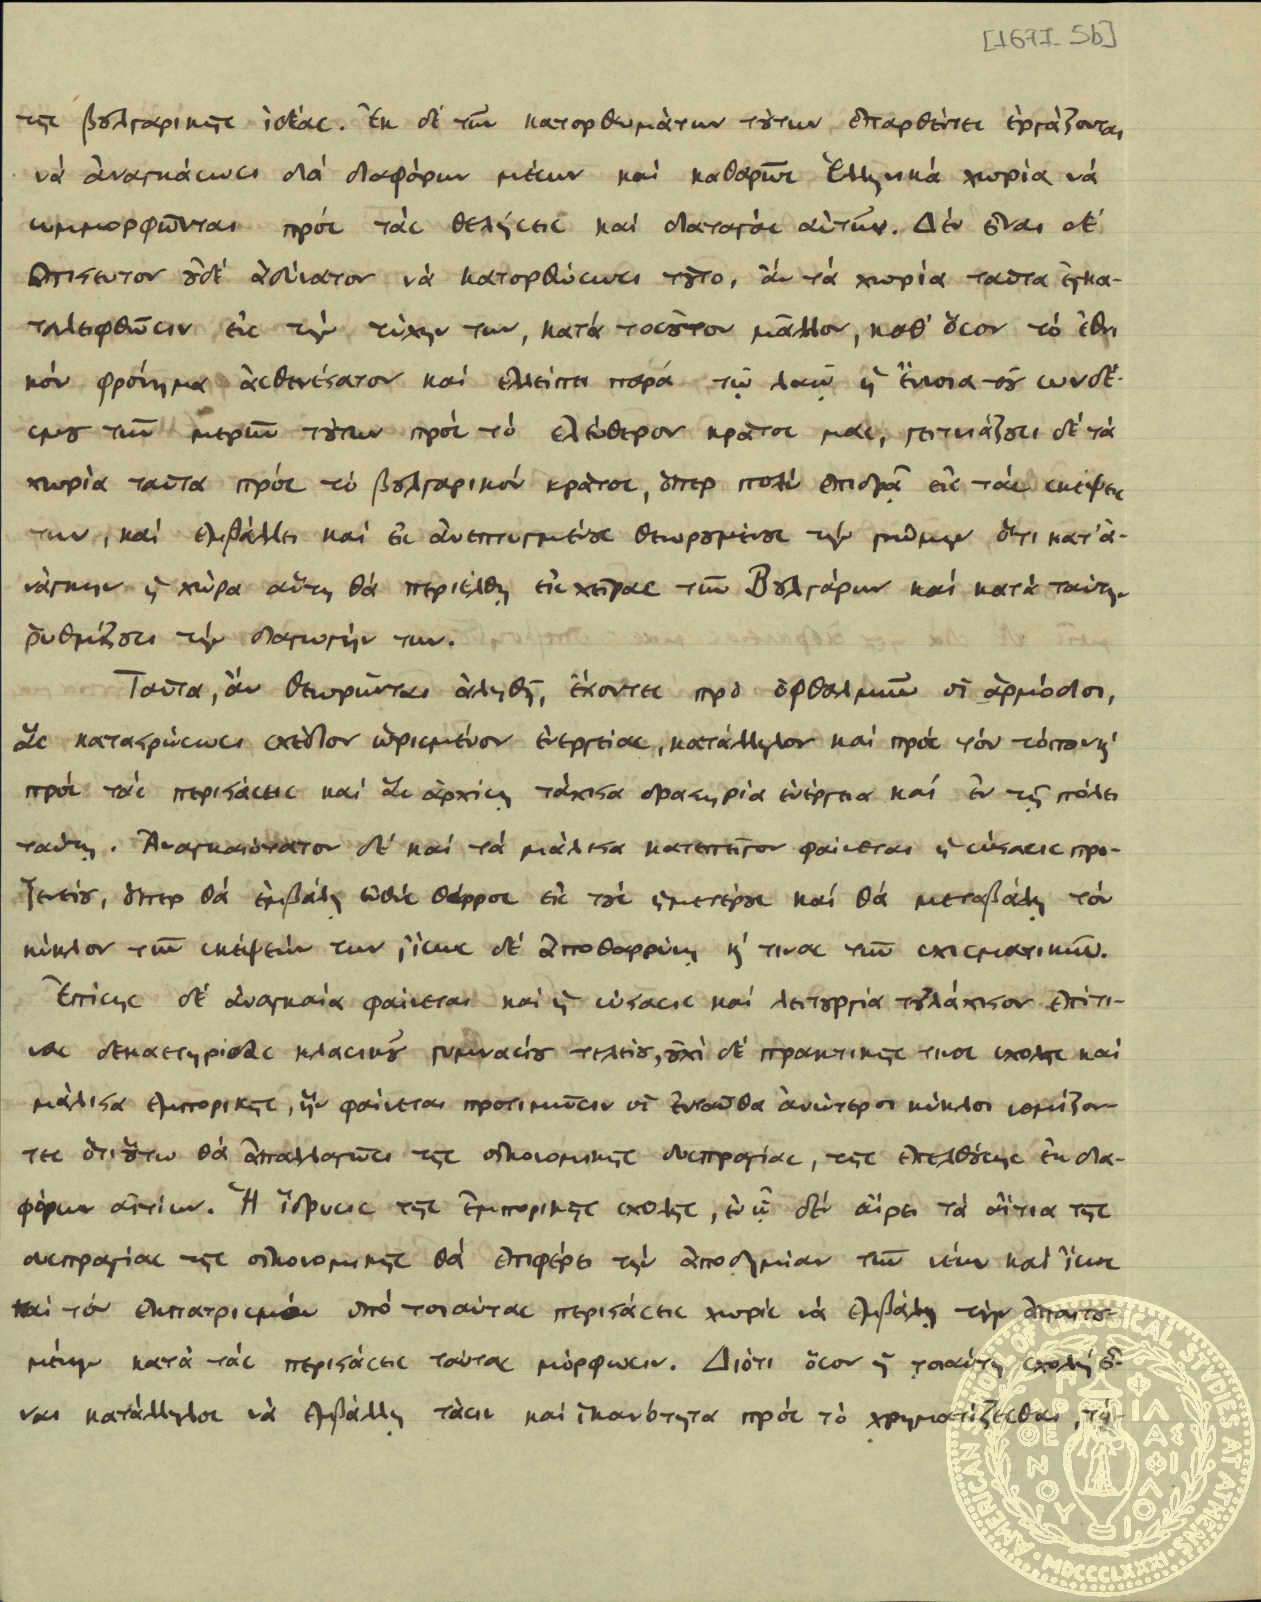 [1671-5b]
τῆς βουλγαρικῆς ἰδέας. Ἐκ δὲ τῶν κατορθωμάτων τούτων ἐπαρθέντες ἐργάζονται
νὰ ἀναγκάσωσι διὰ διαφόρων μέσων καὶ καθαρῶς Ἑλληνικὰ χωρία νὰ
συμμορφῶνται πρὸς τὰς θελήσεις καὶ διαταγὰς αὐτῶν. Δὲν εἶναι δὲ
ἄπιστευτον οὐδὲ ἀδύνατον νὰ κατορθώσωσι τοῦτο, ἂν τὰ χωρία ταῦτα ἐγκα-
ταλειφθῶσιν εἰς τὴν τύχην των, κατὰ τοσοῦτον μᾶλλον, καθ' ὅσον τὸ ἐθνι
κὸν φρόνημα ἀσθενέστατον καὶ ἐλλείπει παρὰ τῷ λαῷ ἡ ἔννοια τοῦ συνδέ-
σμου τῶν μερῶν τούτων πρὸς τὸ ἐλεύθερον κράτος μας, γειτνιάζουσι δὲ τὰ
χωρία ταῦτα πρὸς τὸ βουλγαρικὸν κράτος, ὅπερ πολὺ ἐπιδρᾷ εἰς τὰς σκέψεις
των, καὶ ἐμβάλλει καὶ εἰς ἀνεπτυγμένους θεωρουμένους τὴν γνώμην ὅτι κατ' ἀ-
νάγκην ἡ χώρα αὕτη θὰ περιέλθῃ εἰς χεῖρας τῶν Βουλγάρων καὶ κατὰ ταύτην
ῥυθμίζουσι τὴν διαγωγήν των.
Ταῦτα, ἂν θεωρῶνται ἀληθῆ, ἔχοντες πρὸ ὀφθαλμῶν οἱ ἁρμόδιοι,
ἂς καταστρώσωσι σχέδιον ὡρισμένον ἐνεργείας, κατάλληλον καὶ πρὸς τὸν τόπον κ'
πρὸς τὰς περιστάσεις καὶ ἂς ἀρχίσῃ τάχιστα δραστηρία ἐνέργεια καὶ ἐν τῇ πόλει
ταύτῃ. Ἀναγκαιότατον δὲ καὶ τὰ μάλιστα κατεπεῖγον φαίνεται ἡ σύστασις προ-
ξενείου, ὅπερ θὰ ἐμβάλῃ εὐθὺς θάρρος εἰς τοὺς ἡμετέρους καὶ θὰ μεταβάλῃ τὸν
κύκλον τῶν σκέψεών των, ἴσως δὲ ἀποθαρρύνῃ κ' τινας τῶν σχισματικῶν.
Ἐπίσης δὲ ἀναγκαία φαίνεται καὶ ἡ σύστασις καὶ λειτουργία τοὐλάχιστον ἐπί τι-
νας δεκαετηρίδας κλασικοῦ γυμνασίου τελείου, οὐχὶ δὲ πρακτικῆς τινος σχολῆς καὶ
μάλιστα ἐμπορικῆς, ἣν φαίνεται προτιμῶσιν οἱ ἐνταῦθα ἀνώτεροι κύκλοι νομίζον-
τες ὅτι οὕτω θὰ ἀπαλλαγῶσι τῆς οἰκονομικῆς δυσπραγίας, τῆς ἐπελθούσης ἐκ δια-
φόρων αἰτίων. Ἡ ἵδρυσις τῆς Ἐμπορικῆς σχολῆς, ἐν ᾧ δὲν αἴρει τὰ αἴτια τῆς
δυσπραγίας τῆς οἰκονομικῆς θὰ ἐπιφέρει τὴν ἀποδημίαν τῶν νέων καὶ ἴσως
καὶ τὸν ἐκπατρισμὸν ὑπὸ τοιαύτας περιστάσεις χωρὶς νὰ ἐμβάλῃ τὴν ἀπαιτου-
μένην κατὰ τὰς περιστάσεις ταύτας μόρφωσιν. Διότι ὅσον ἡ τοιαύτη σχολὴ εἶ-
ναι κατάλληλος νὰ ἐμβάλλῃ τάσιν καὶ ἱκανότητα πρὸς τὸ χρηματίζεσθαι,
AMERICAN SCHOOL OF CLASSICAL STUDIES AT ATHENS · MDCCCLXXXI ·
ΠΑΡΘΕΝΟΥ ΦΙΛΑΣ ΦΙΛΟΙ